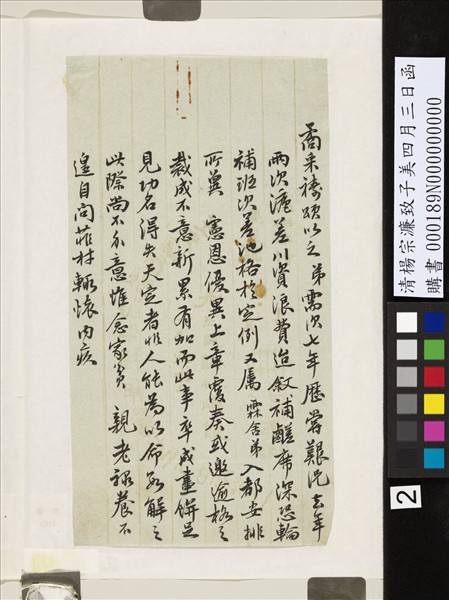 矞采禱頌以之弟需次七年歷嘗艱況去年
兩次滬差川資浪費迨敘補鹺席深恐輪
補班次差池格於定例又屬霖舍弟入都安排
所冀 憲恩優異上章覆奏或邀逾格之
裁成不意新累有加而此事卒成畫餅足
見功名得失天定者非人能為以命自解之
此際尚不介意惟念家貧 親老祿養不
遑自問菲材輒懷內疚
清楊宗濂致子美四月三日函
購書 000189N000000000000
2